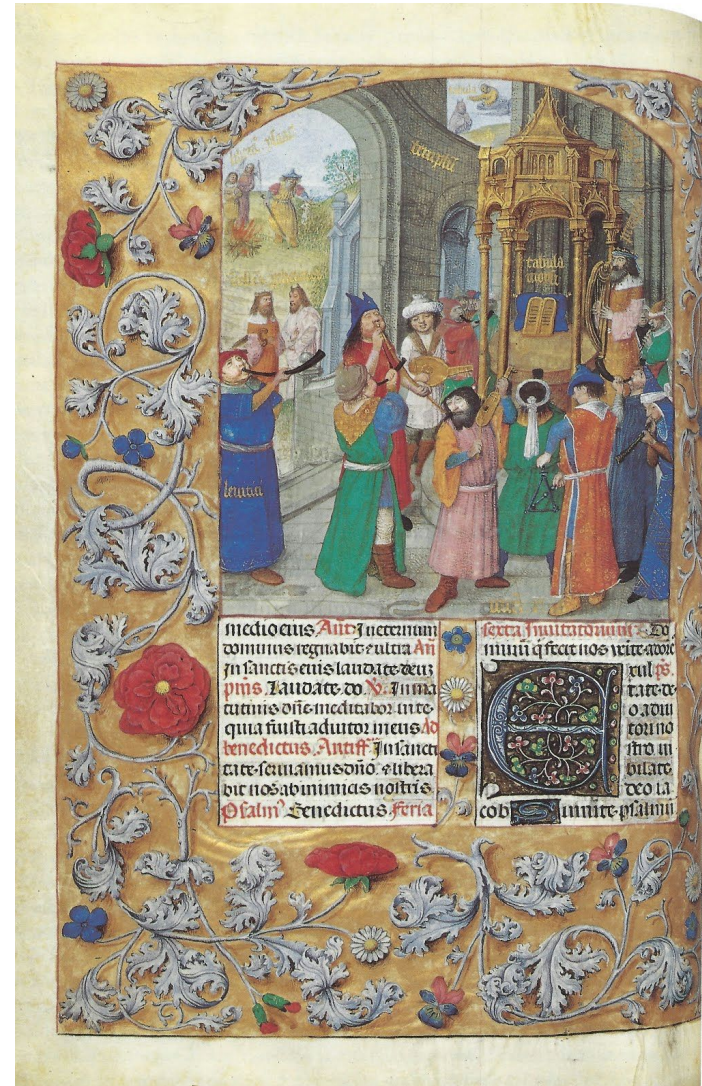 tabula
tabula
moysi
leuitici
medio eius Añ Jn eternum
dominus regnabit ⁊ ultra Añ
Jn sanctis eius laudate deuz
p̄ms. Laudate. do. V̄. Jn ma
tutinis dñe meditabor in te
quia fuisti adiutor meus Ad
benedictus. Antiff̃ Jn sancti
tate seruiamus dño. ⁊ libera
bit nos ab inimicis nostris
Psalm⁹ Benedictus Feria
sexta Jnuitatorium Do
minū q̄ fecit nos venite adore
ps.
E
tate de
o adiu
tori no
stro iu
bilate
deo ia
cob Sumite psalmū